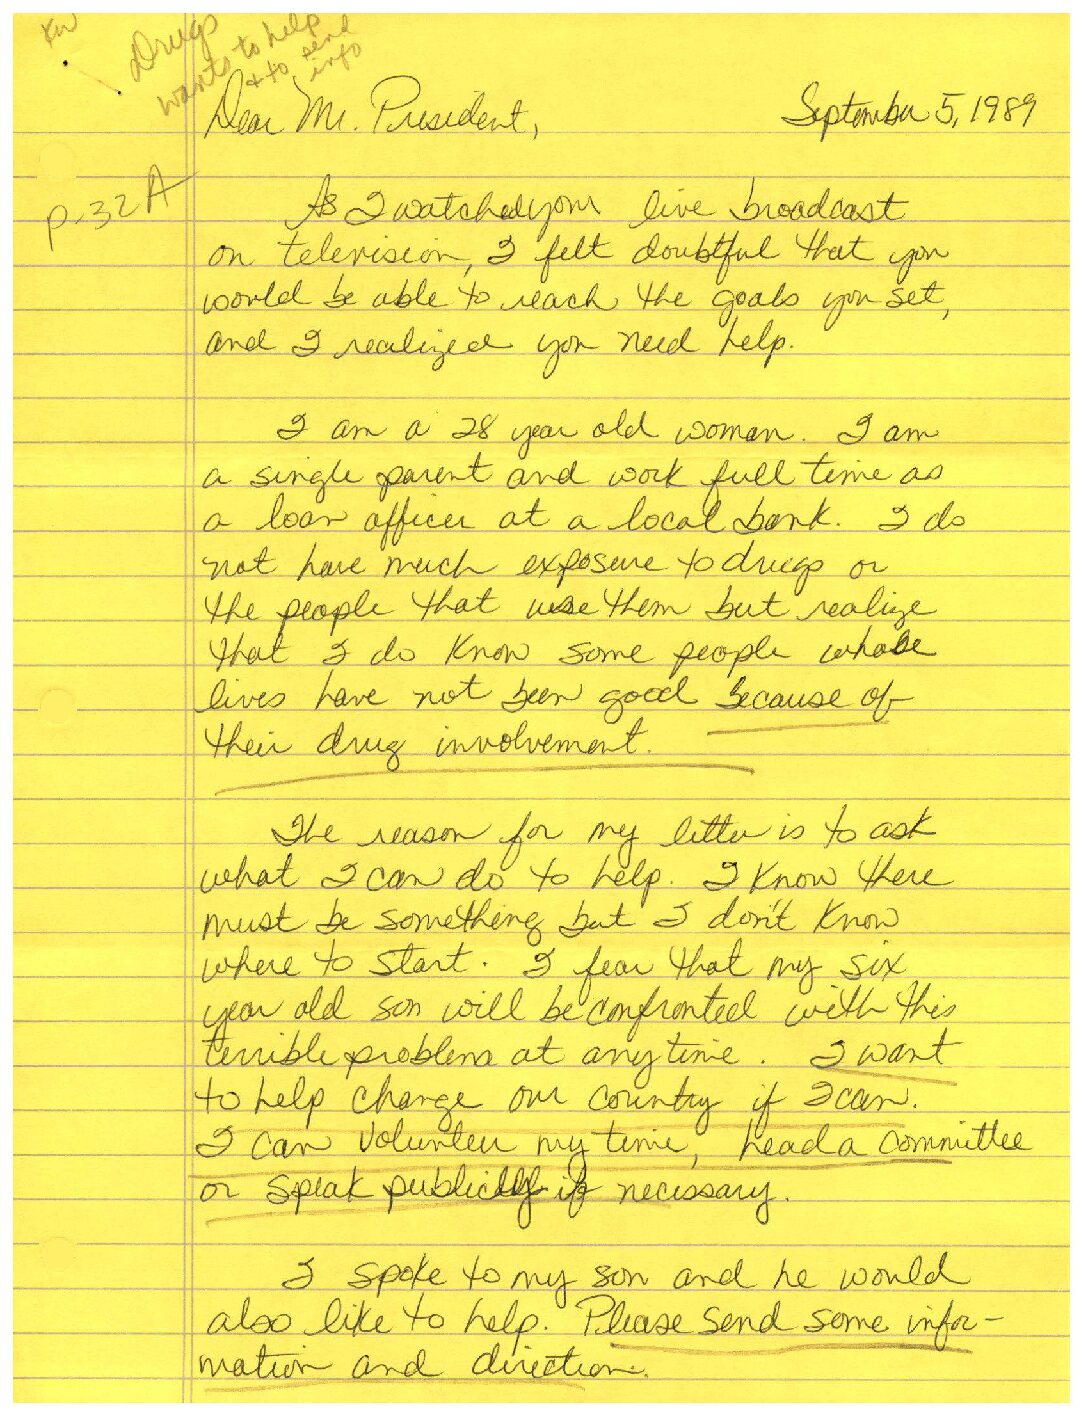 Kw
Drugs
wants to help
+ to send
info
Dear Mr. President,
September 5, 1989
P-32A
As I watched your live broadcast
on television, I felt doubtful that you
would be able to reach the goals you set,
and I realized you need help.
I am a 28 year old woman. I am
a single parent and work full time as
a loan officer at a local bank. I do
not have much exposure to drugs or
the people that use them but realize
that I do know some people whose
lives have not been good because of
their drug involvement.
The reason for my letter is to ask
what I can do to help. I know there
must be something but I don't know
where to start. I fear that my six
year old son will be confronted with this
terrible problem at any time. I want
to help change our country if I can.
I can volunteer my time, head a committee
or speak publicly if necessary.
I spoke to my son and he would
also like to help. Please send some infor-
mation and direction.